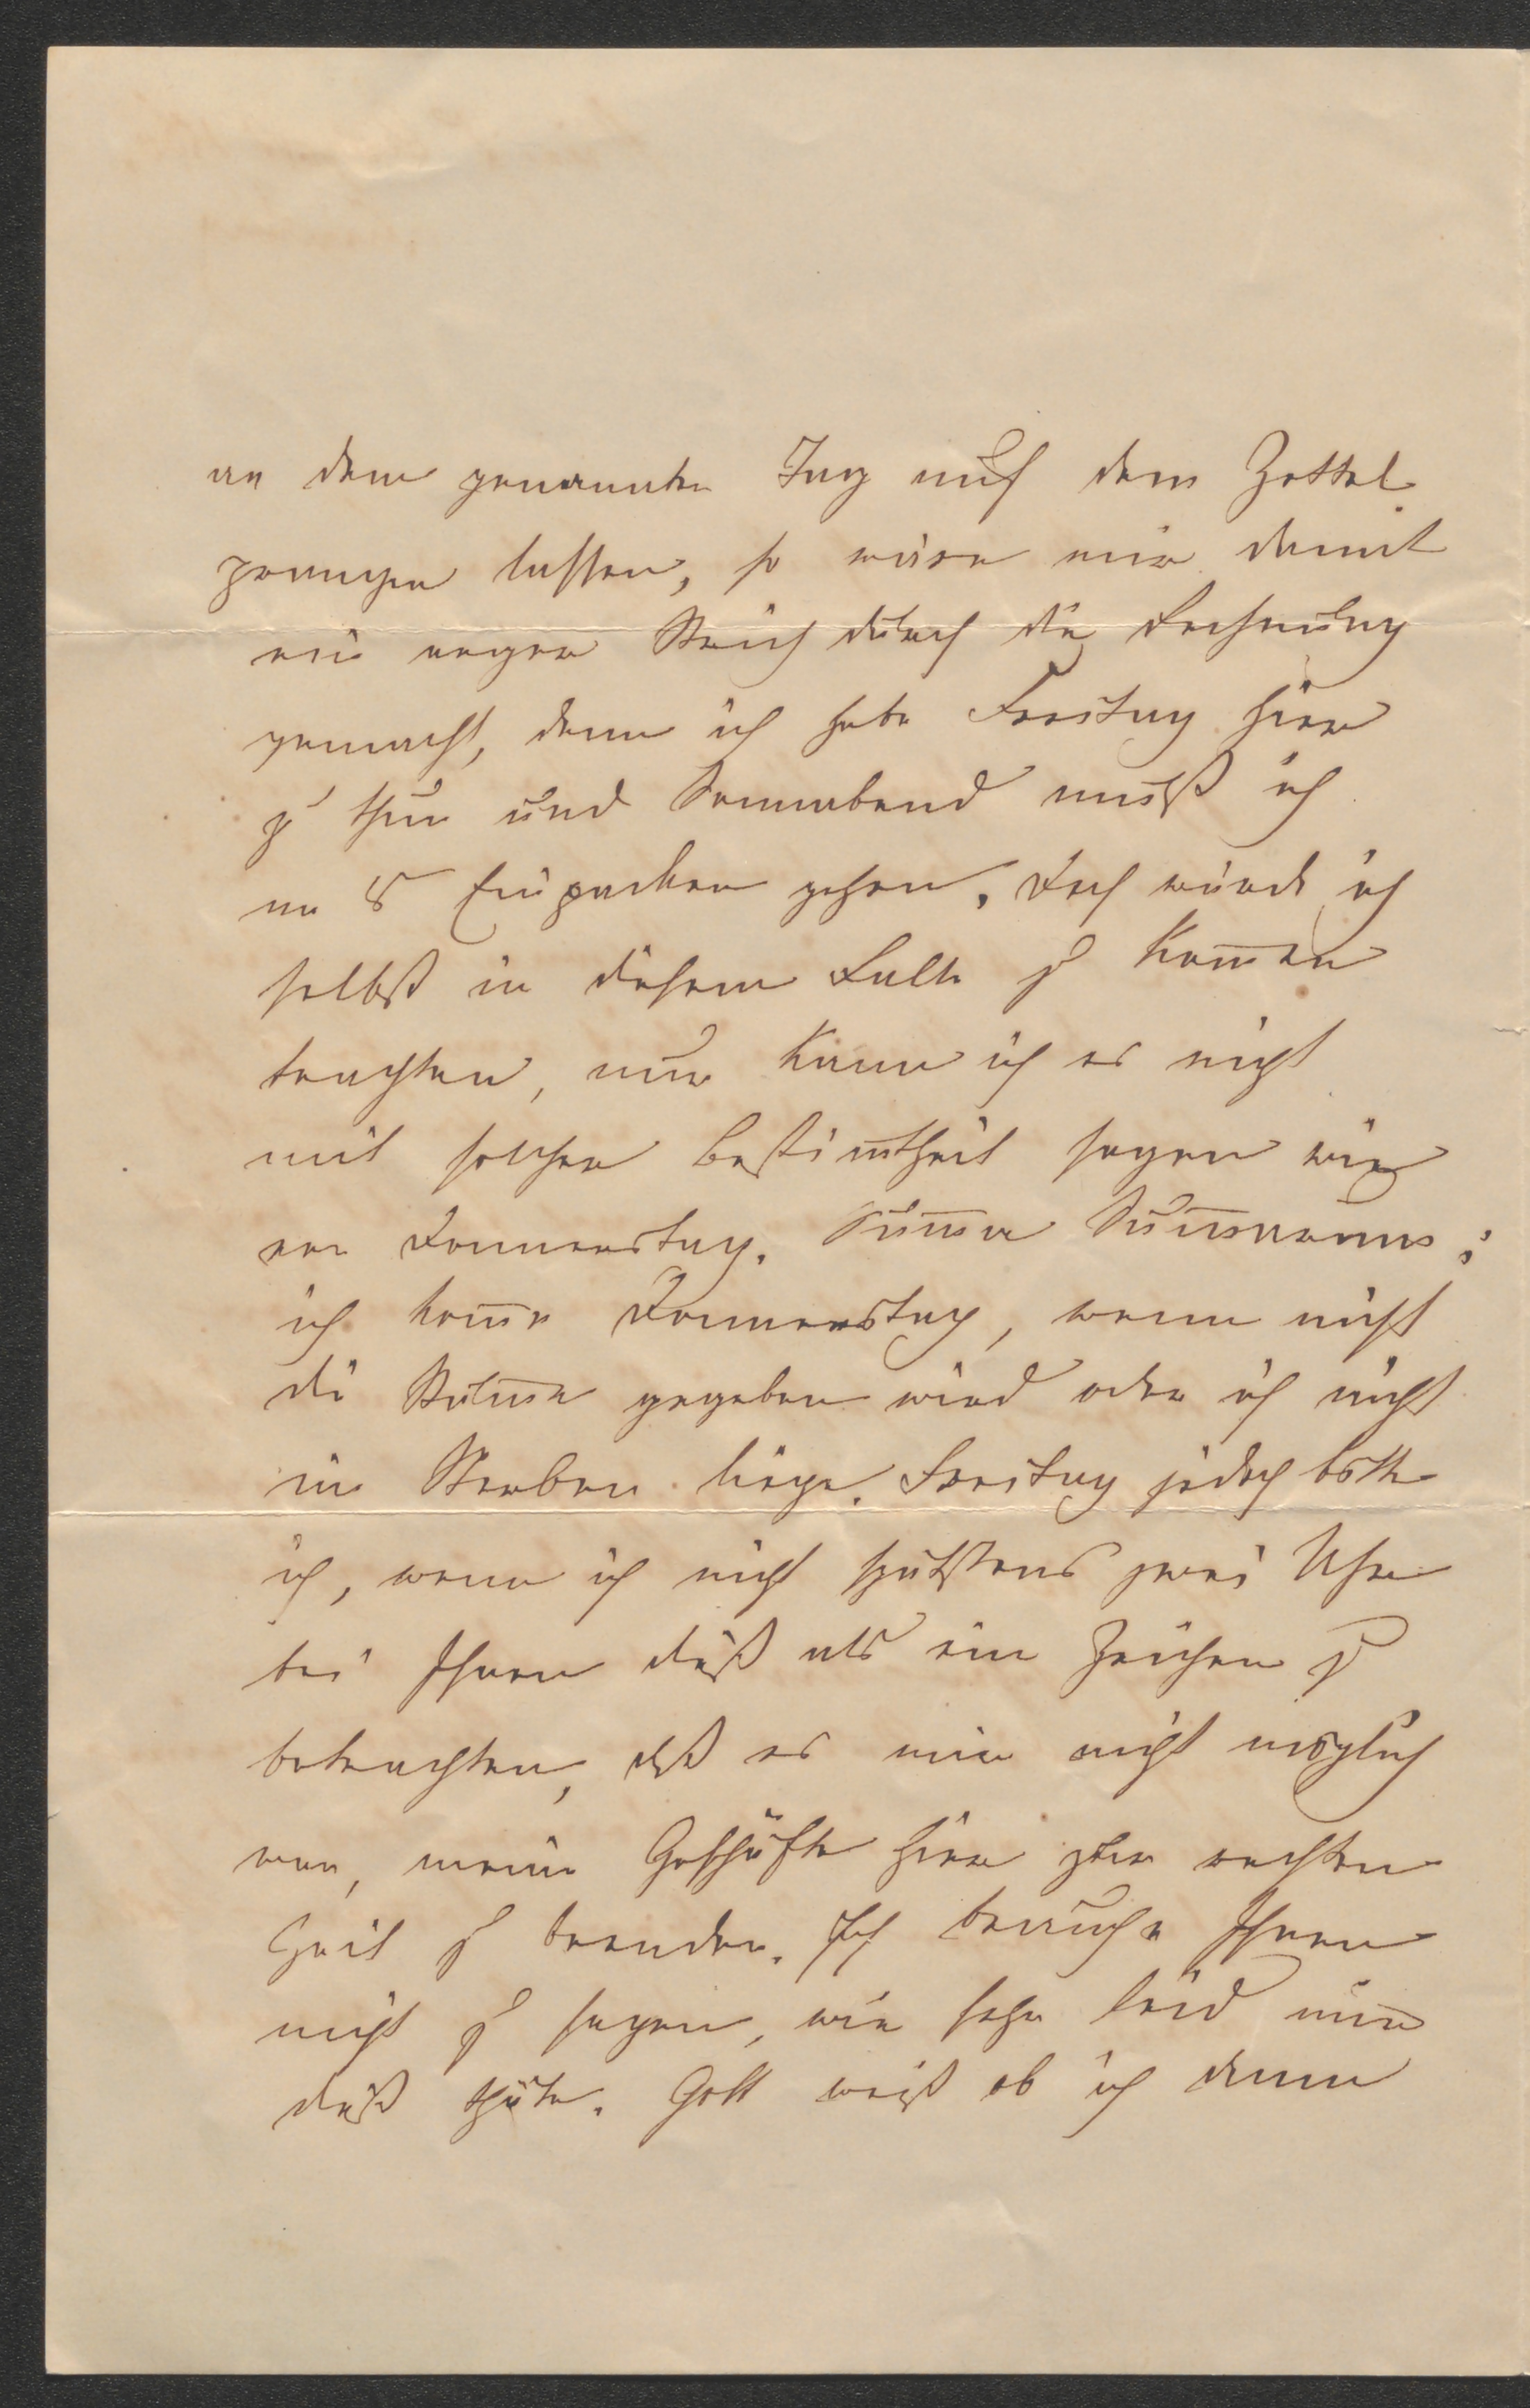 an dem genannten Tag auf dem Zettel
prangen lassen, so wäre mir damit
ein arger Strich durch die Rechnung
gemacht, denn ich habe Freitag hier
zu thun und Sonnabend muß ich
an's Einpacken gehen. Doch würde ich
selbst in diesem Falle zu kom̅en
trachten, nur kann ich es nicht
mit solcher Bestim̅theit sagen wie
von Donnerstag. Sum̅a Sum̅arum:
ich kom̅e Donnerstag, wenn nicht
die gegeben wird oder ich nicht
im Sterben liege. Freitag jedoch bitte
ich, wenn ich nicht spätstens zwei Uhr
bei Ihnen dieß als ein Zeichen zu
betrachten, daß es mir nicht möglich
war, meine Geschäfte hier zur rechten
Zeit zu beenden. Ich brauche Ihnen
nicht zu sagen, wie sehr leid mir
dieß thäte. Gott weiß ob ich dann